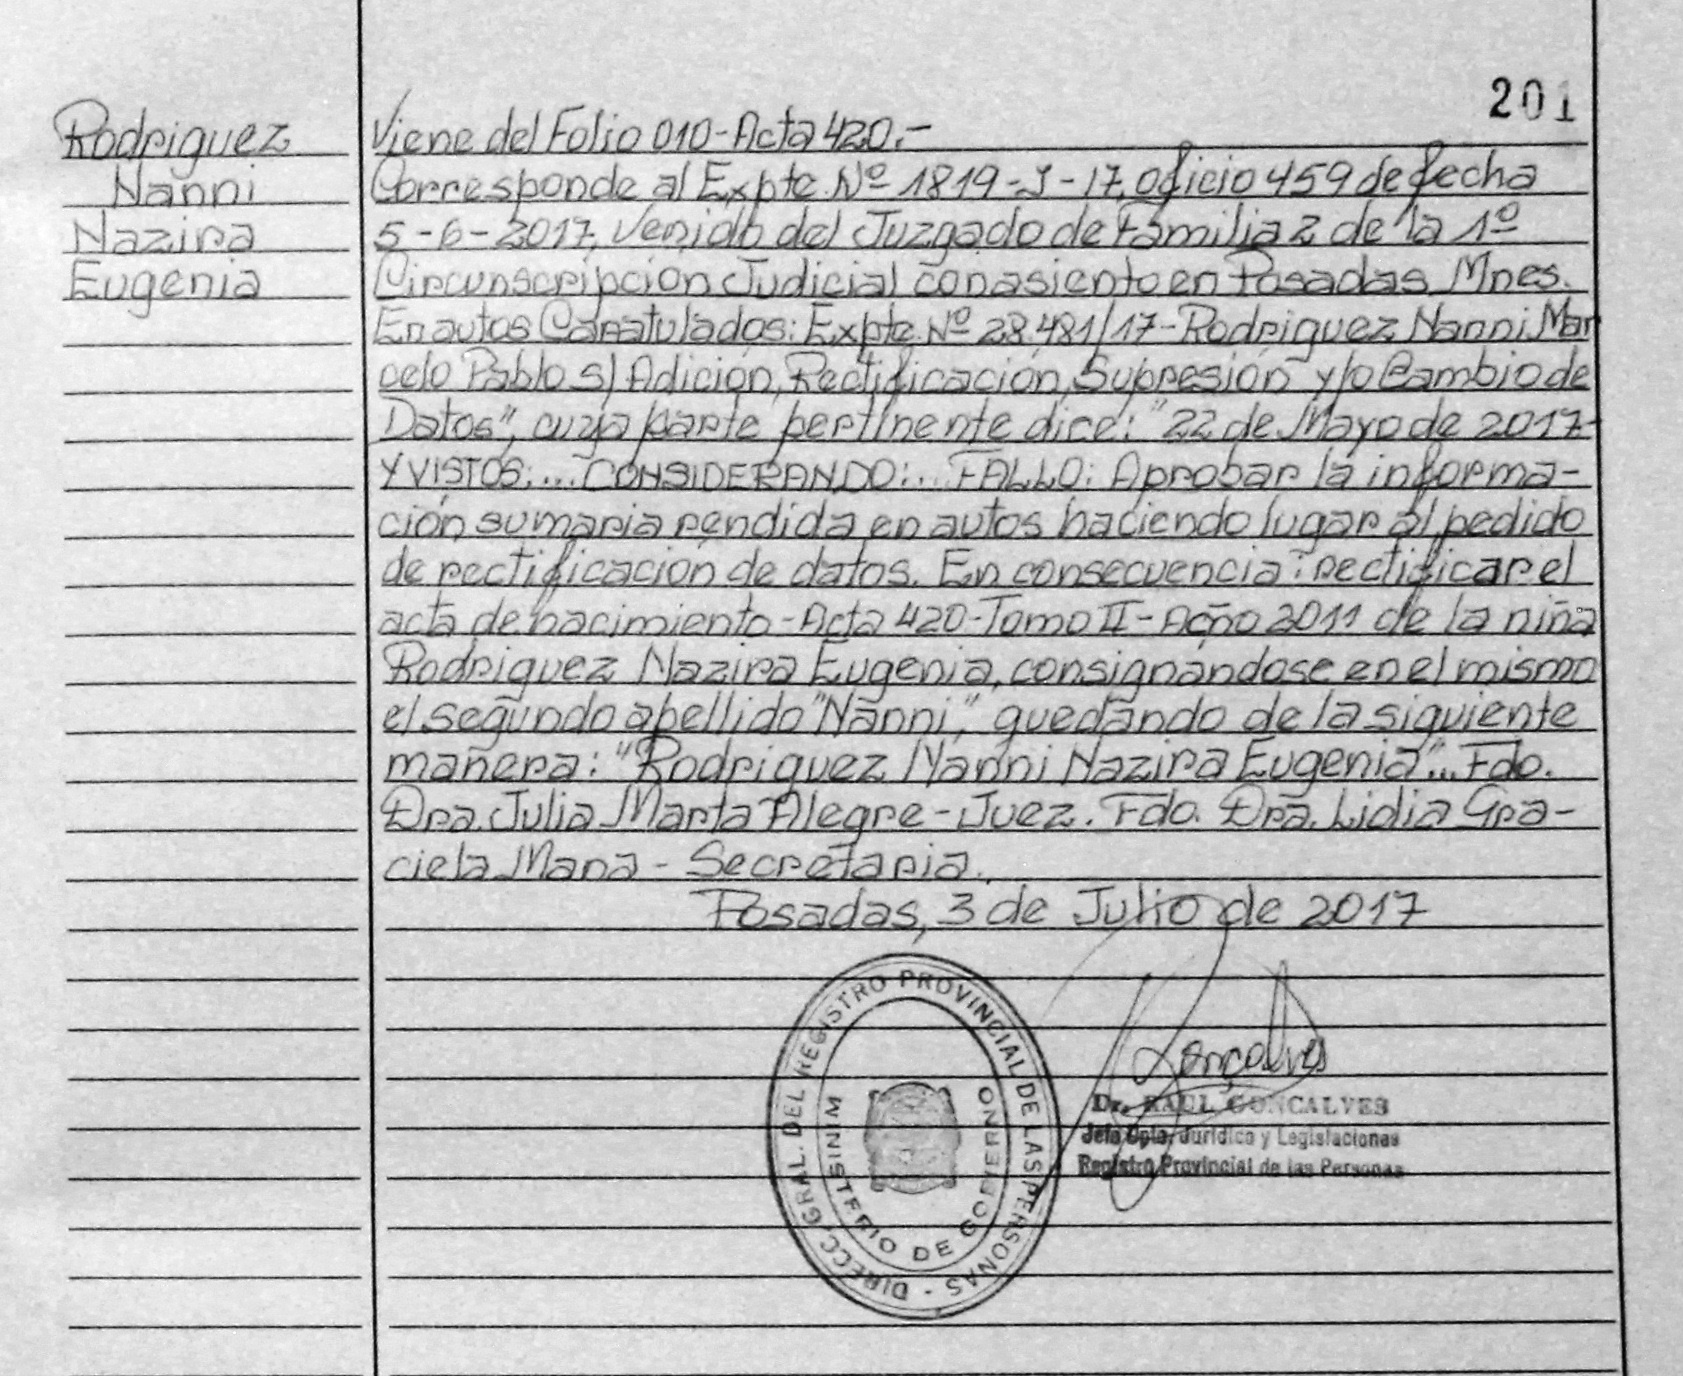 201
Rodriguez
Nanni
Nazira
Eugenia
Viene del Folio 010-Acta 420.-
Corresponde al Expte. Nº 1819-J-17, oficio 459 de fecha
5-6-2017, Venido del Juzgado de Familia 2 de la 1º
Circunscripción Judicial con asiento en Posadas, Mnes.
En autos Caratulados: Expte. Nº 28.481/17-Rodriguez Nanni Mar
celo Pablo s/ Adición, Rectificación, Supresión y/o Cambio de
Datos", cuya parte pertinente dice: "22 de Mayo de 2017-
Y VISTOS:... CONSIDERANDO:... FALLO: Aprobar la informa-
ción sumaria rendida en autos haciendo lugar al pedido
de rectificación de datos. En consecuencia: rectificar el
acta de nacimiento-Acta 420-Tomo II-Año 2011 de la niña
Rodriguez Nazira Eugenia, consignándose en el mismo
el segundo apellido "Nanni," quedando de la siguiente
manera: "Rodriguez Nanni Nazira Eugenia"... Fdo.
Dra. Julia Marta Alegre-Juez. Fdo. Dra. Lidia Gra-
ciela Mara - Secretaria.
Posadas, 3 de Julio de 2017
DIRECC. GRAL. DEL REGISTRO PROVINCIAL DE LAS PERSONAS -
MINISTERIO DE GOBIERNO
Gonçalves
Dr. RAUL GONCALVES
Jefe Dpto. Jurídico y Legislaciones
Registro Provincial de las Personas